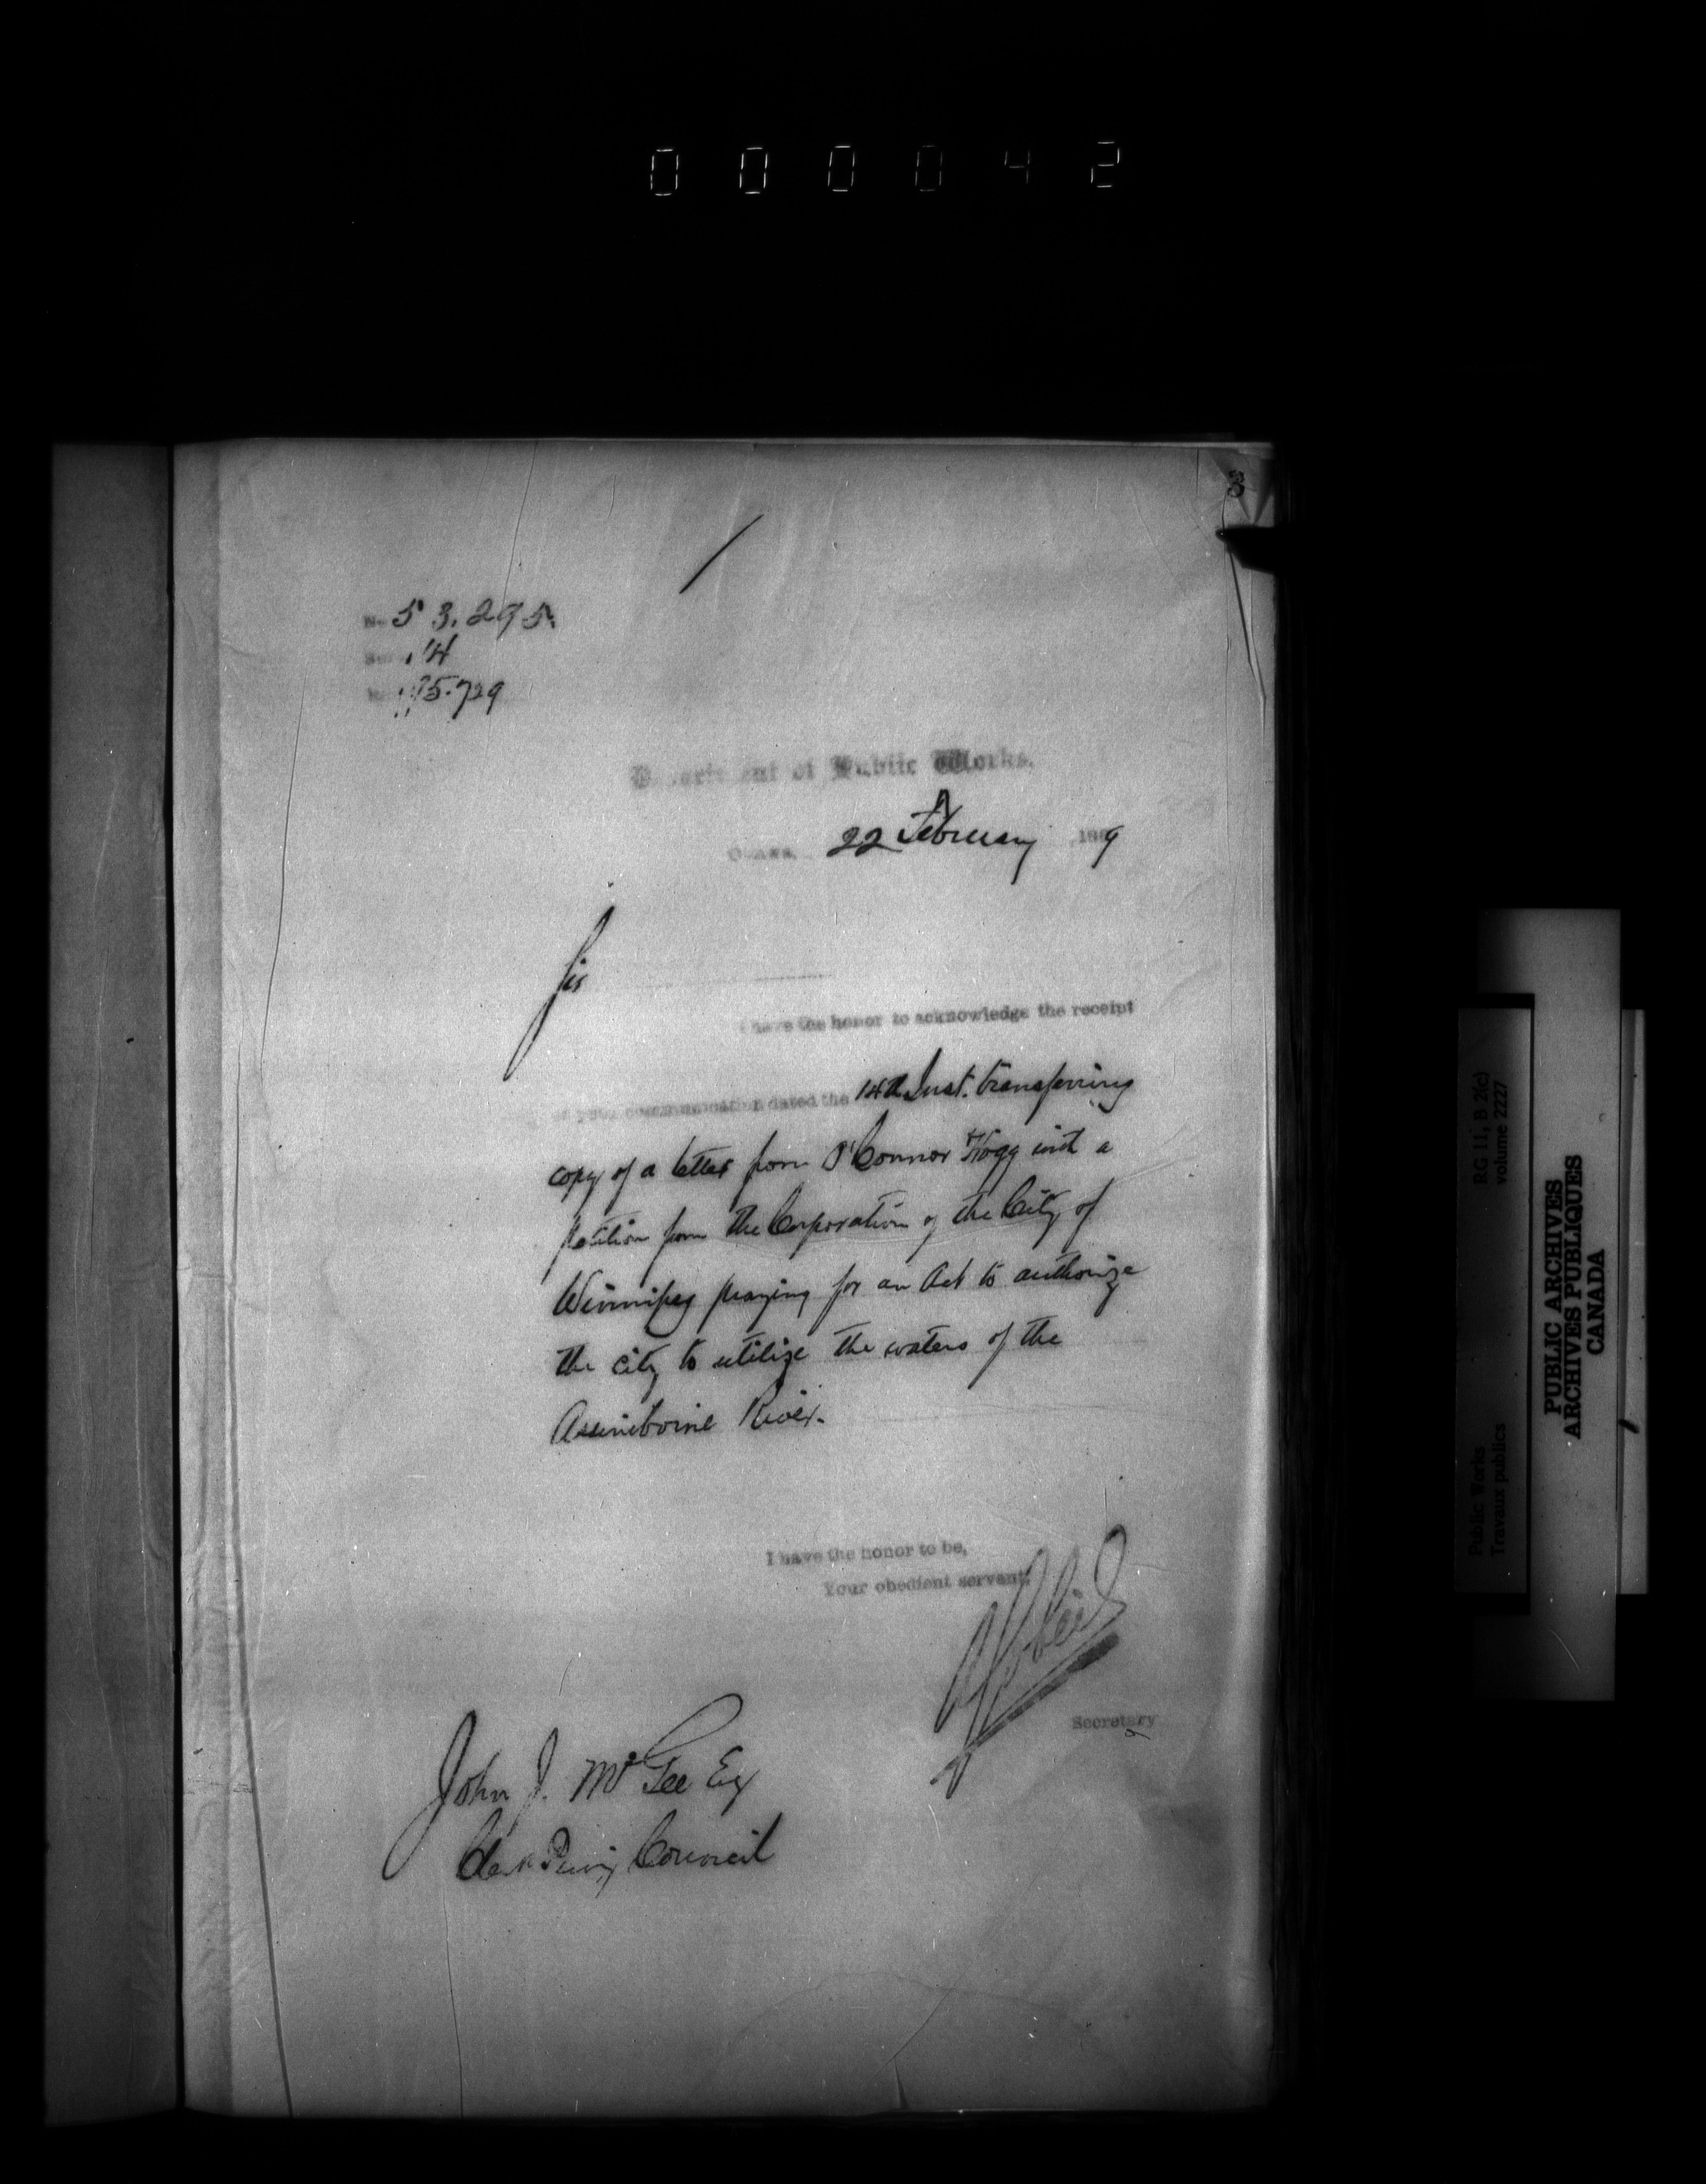 000042
3
No 53.295.
14
5.729
Department of Public Works.
Ottawa, 22 February, 1889
Sir
I have the honor to acknowledge the receipt
of your communication dated the 14th Inst. transferring
copy of a letter from O'Connor & Hogg with a
petition from the Corporation of the City of
Winnipeg praying for an Act to authorize
the city to utilize the waters of the
Assiniboine River.
I have the honor to be,
Your obedient servant,
Secretary
John J. McGee Esq
Clerk Privy Council
RG 11, B 2(c)
volume 2227
Public Works
Travaux publics
PUBLIC ARCHIVES
ARCHIVES PUBLIQUES
CANADA